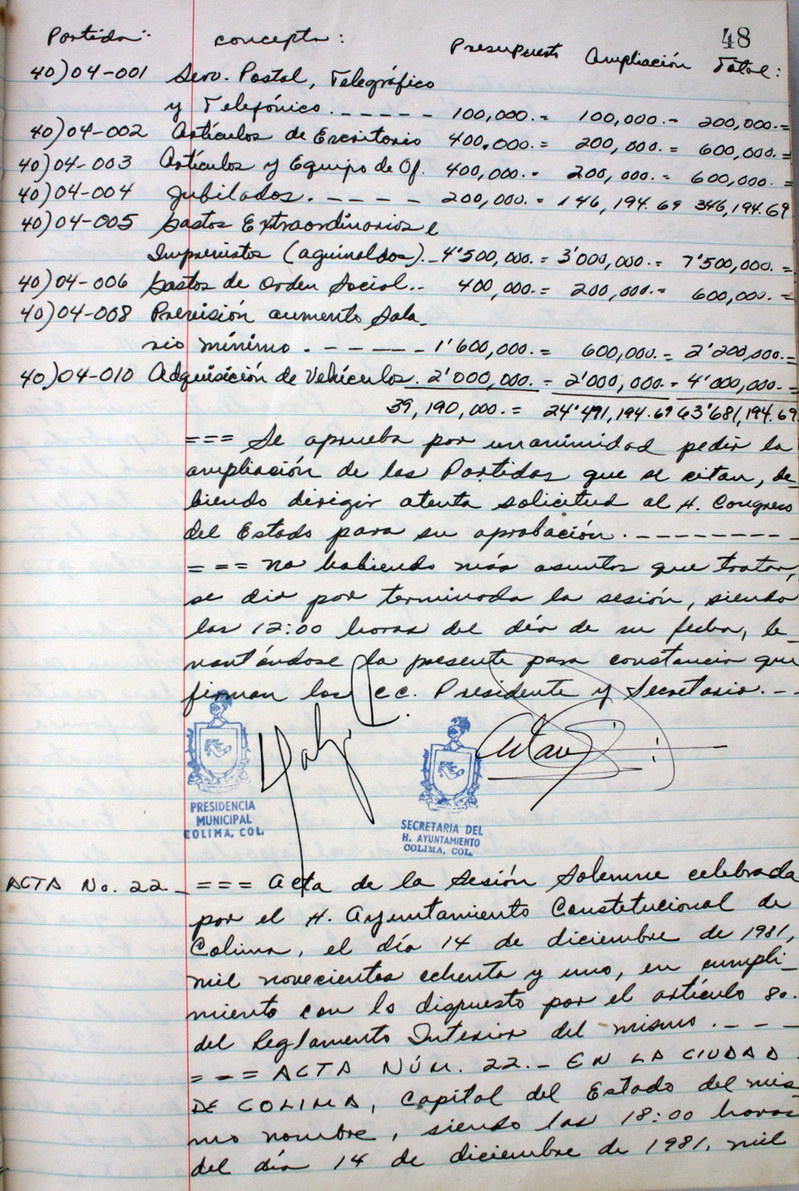 48
Partida:- concepto: Presupuesto Ampliación Total:
40)04-001 Serv. Postal, Telegráfico
y Telefónico.----- 100,000.= 100,000.= 200,000.=
40)04-002 Artículos de Escritorio 400,000.= 200,000.= 600,000.=
40)04-003 Artículos y Equipo de Of. 400,000.= 200,000.= 600,000.=
40)04-004 Jubilados.---- 200,000.= 146,194.69 346,194.69
40)04-005 Gastos Extraordinarios e
Imprevistos (aguinaldos).- 4'500,000.= 3'000,000.= 7'500,000.=
40)04-006 Gastos de Orden Social.- 400,000.= 200,000.= 600,000.=
40)04-008 Previsión aumento Sala-
rio mínimo.----- 1'600,000.= 600,000.= 2'200,000.=
40)04-010 Adquisición de Vehículos. 2'000,000.= 2'000,000.= 4'000,000.=
39,190,000.= 24'491,194.69 63'681,194.69
=== Se aprueba por unanimidad pedir la
ampliación de las Partidas que se citan, de-
biendo dirigir atenta solicitud al H. Congreso
del Estado para su aprobación.---------
=== No habiendo más asuntos que tratar,
se dio por terminada la sesión, siendo
las 12:00 horas del día de su fecha, le-
vantándose la presente para constancia que
firman los C.C. Presidente y Secretario.--
PRESIDENCIA
MUNICIPAL
COLIMA, COL.
SECRETARIA DEL
H. AYUNTAMIENTO
COLIMA, COL.
ACTA No. 22.- === Acta de la Sesión Solemne celebrada
por el H. Ayuntamiento Constitucional de
Colima, el día 14 de diciembre de 1981,
mil novecientos ochenta y uno, en cumpli-
miento con lo dispuesto por el artículo 8o.
del Reglamento Interior del mismo.----
=== ACTA NÚM. 22.- EN LA CIUDAD
DE COLIMA, Capital del Estado del mis-
mo nombre, siendo las 18:00 horas
del día 14 de diciembre de 1981, mil